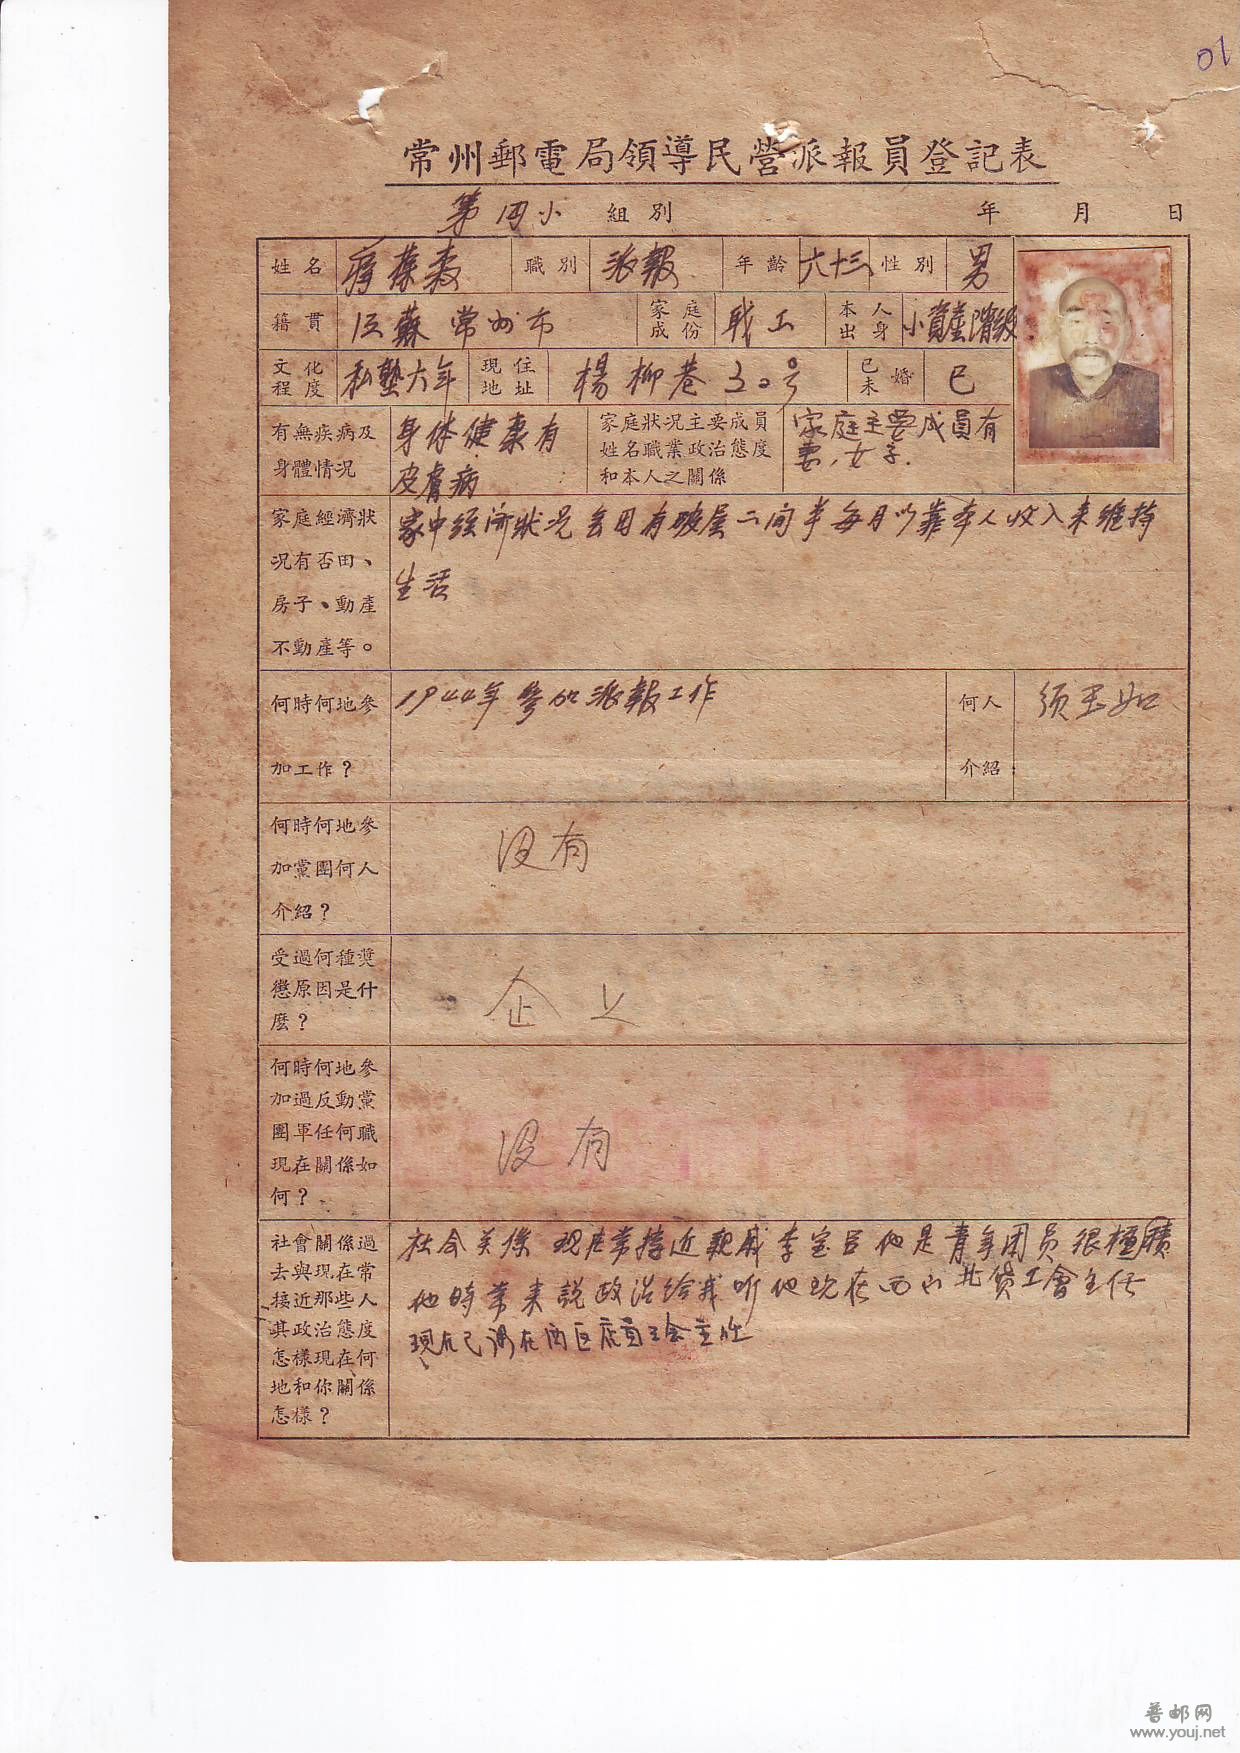 01
常州郵電局領導民營派報員登記表
第四小 組別 年 月 日
姓名 職別 派報 年齡 六十三 性別 男
籍貫 江蘇常州市 家庭成份 職工 本人出身 小資產階級
文化程度 私塾六年 現住地址 楊柳巷30号 已未婚 已
有無疾病及身體情况 身体健康有皮膚病 家庭狀况主要成員姓名職業政治態度和本人之關係 家庭主要成員有妻,女子.
家庭經濟狀况有否田、房子、動產不動產等。
家中经济狀况 有破屋二间半每月以靠本人收入来維持
生活
何時何地參加工作? 1944年参加派報工作 何人介紹: 须玉如
何時何地參加黨團何人介紹? 没有
受過何種奬懲原因是什麼?
何時何地參加過反動黨團軍任何職現在關係如何? 没有
社會關係過去與現在常接近那些人其政治態度怎樣現在何地和你關係怎樣?
社会关係 现在常接近親戚李宝 他是青年团员很積
他時常来説政治给我听他现在西 工會主任
現在已调在西区店员工会主任
普邮网
www.youj.net